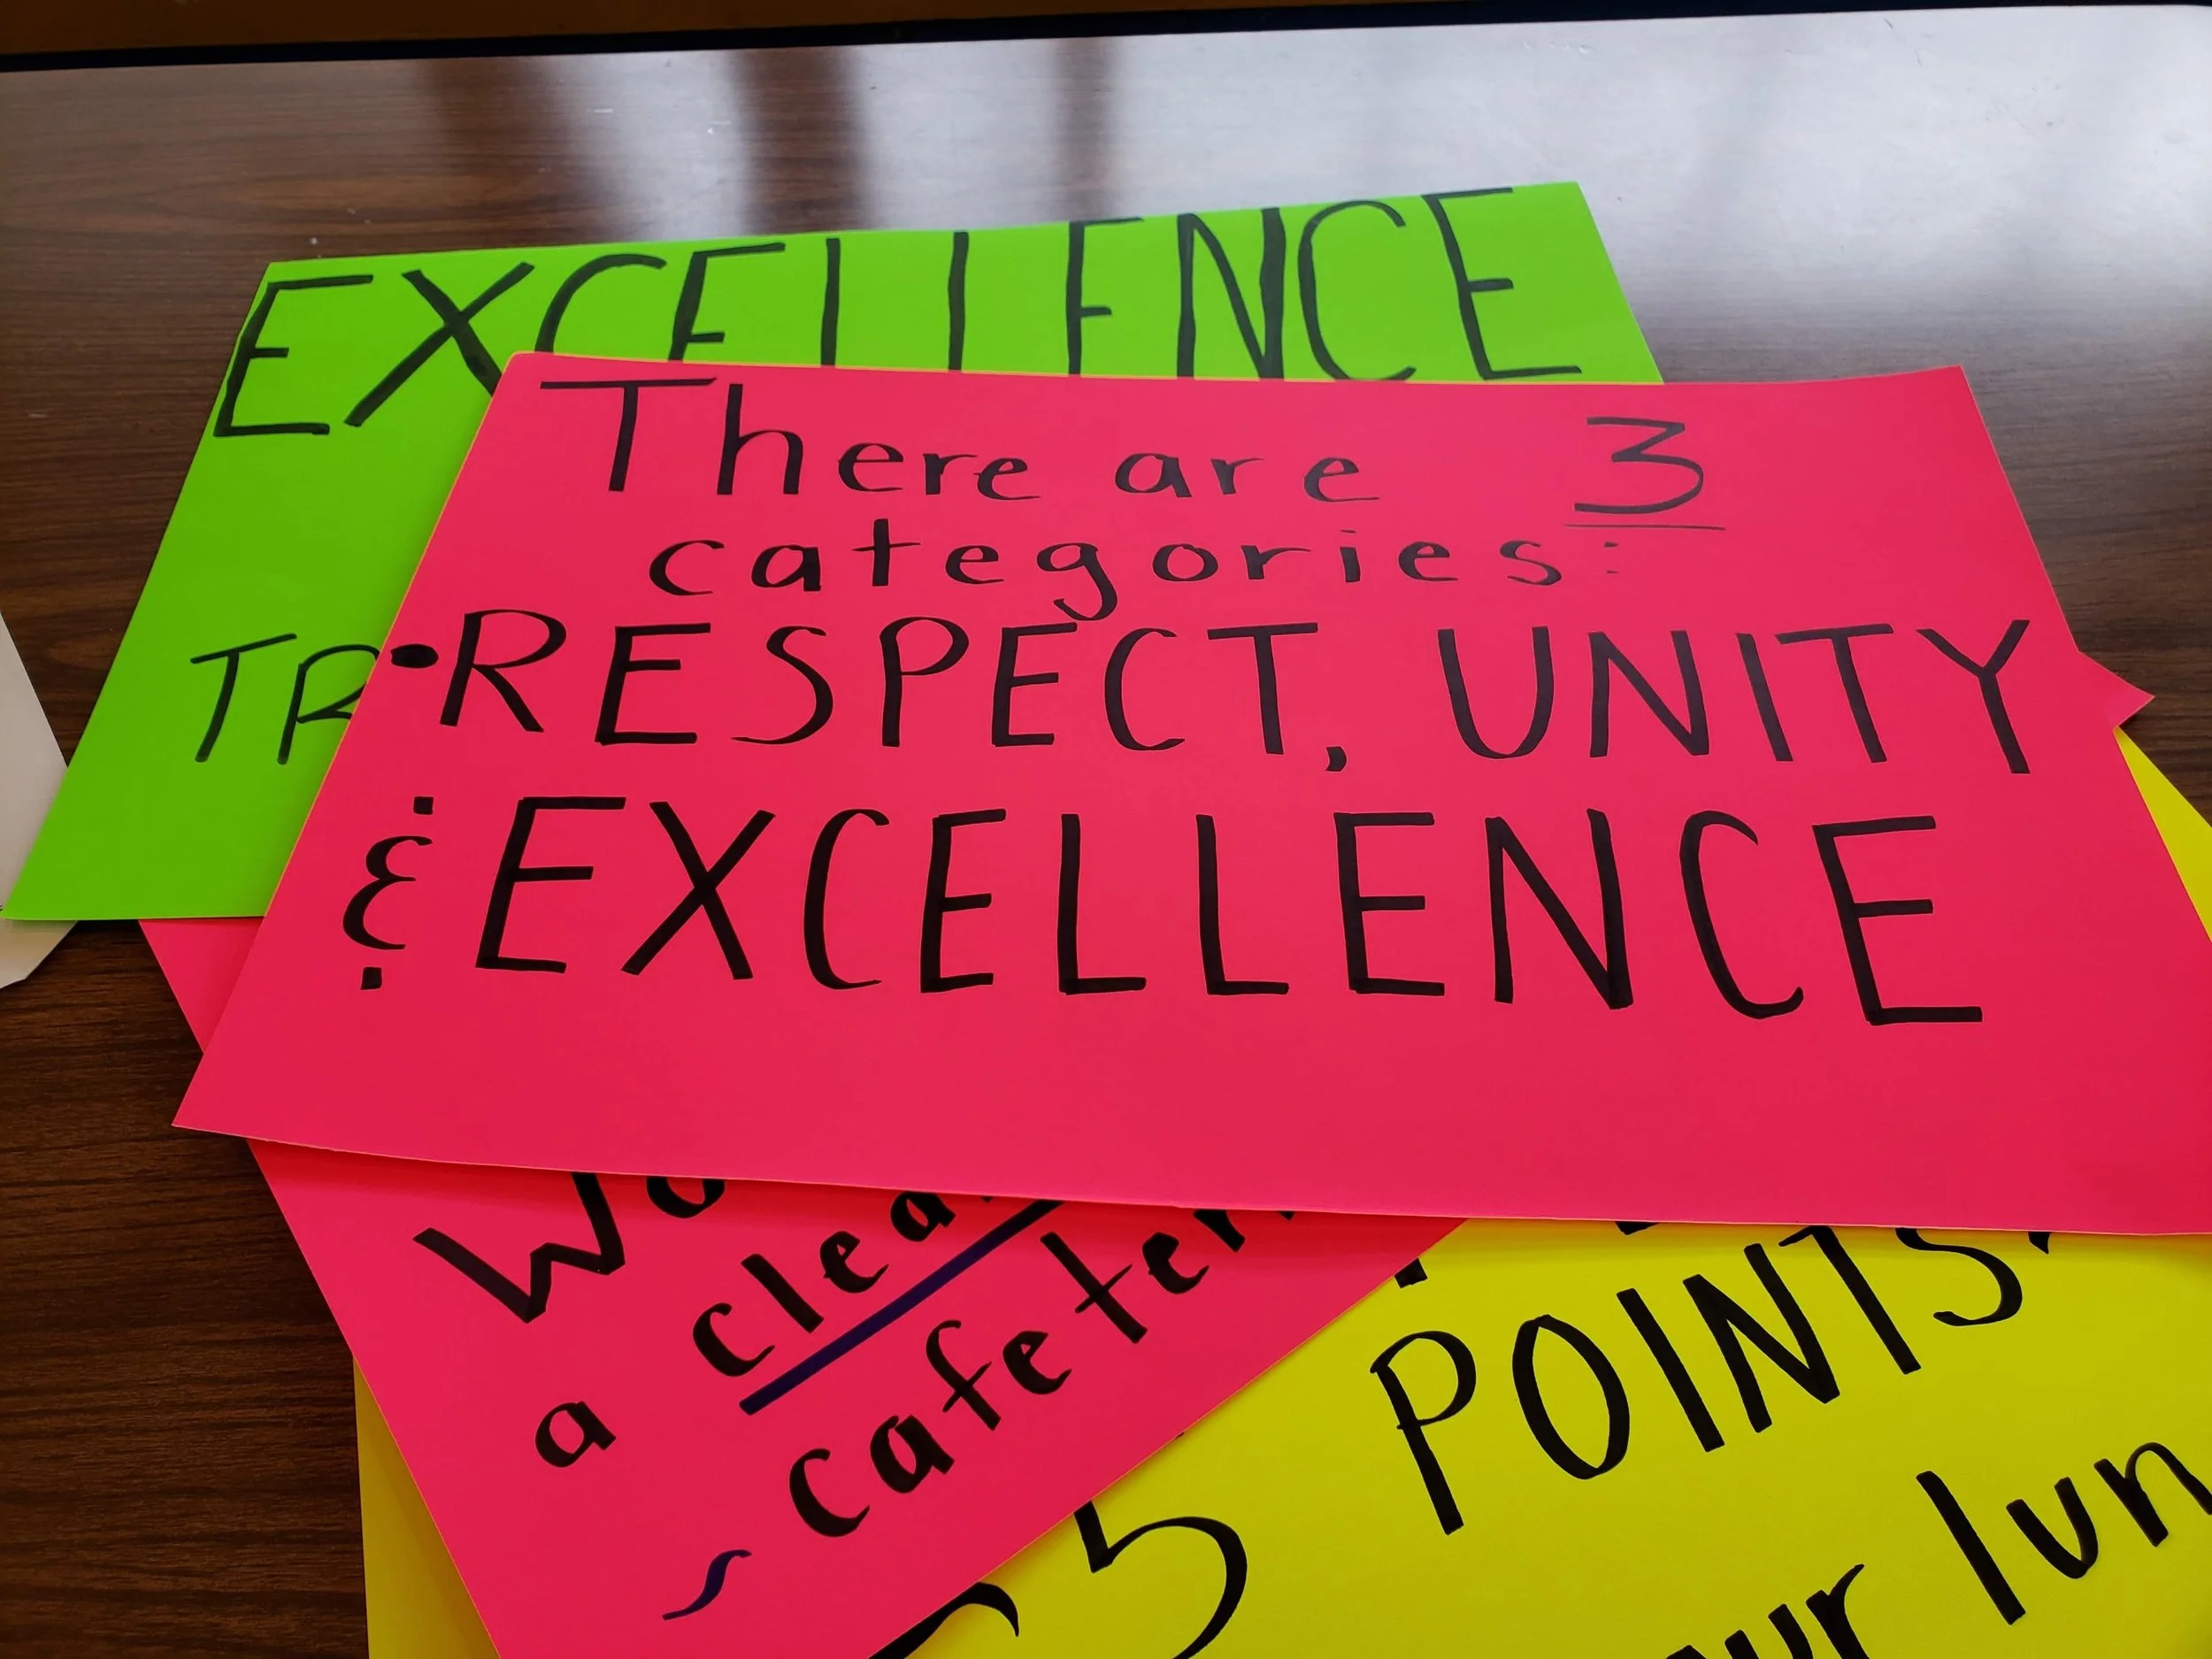 EXCELLENCE
There are 3
categories:
•RESPECT, UNITY
& EXCELLENCE
a
cafeter
POINTS
5